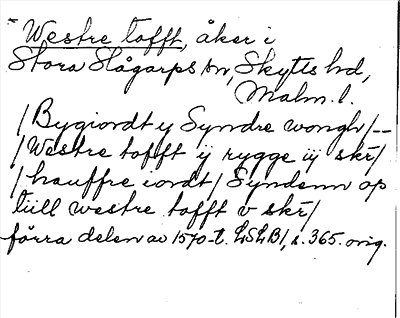 Westre tofft, åker i
Stora Slågarps sn, Skytts hd,
Malm. l.
/Bygiordt y Syndre wongh/--
/Westre tofft ij rygge iij skr/
/hauffre iordt/ Syndenn op
tüll westre tofft v skr/
förra delen av 1570-t. LSLB1, s. 365. orig.